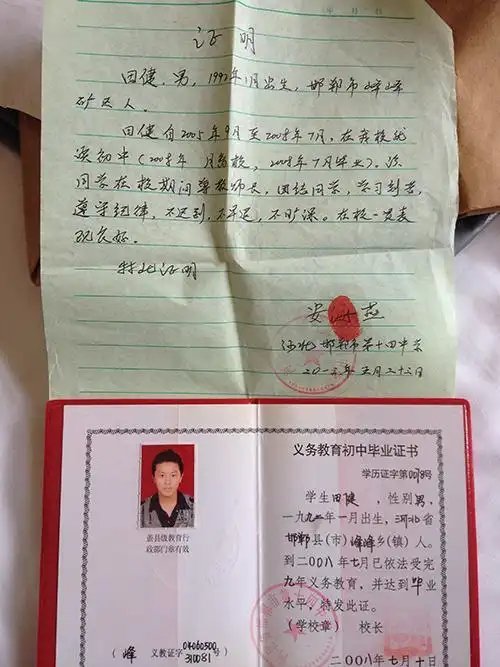 年 月 日
证明
田健，男，1992年1月出生，邯郸市峰峰
矿区人。
田健自2005年9月至2008年7月，在我校就
读初中（2005年 月 校，2008年7月毕业）。该
同学在校期间尊敬师长，团结同学，学习刻苦，
遵守纪律，不迟到，不早退，不旷课。在校一贯表
现良好。
特此证明
安
河北邯郸市第十四中学
二〇一三年三月二十三日
义务教育初中毕业证书
学历证字第0018号
学生田健，性别男，
一九九二年一月出生，河北省
邯郸县(市)峰峰乡(镇)人。
到二00八年七月已依法受完
九年义务教育，并达到毕业
水平，特发此证。
(学校章) 校长
二00八年七月十
盖县级教育行
政部门章有效
(峰 义教证字04060500
310081号)